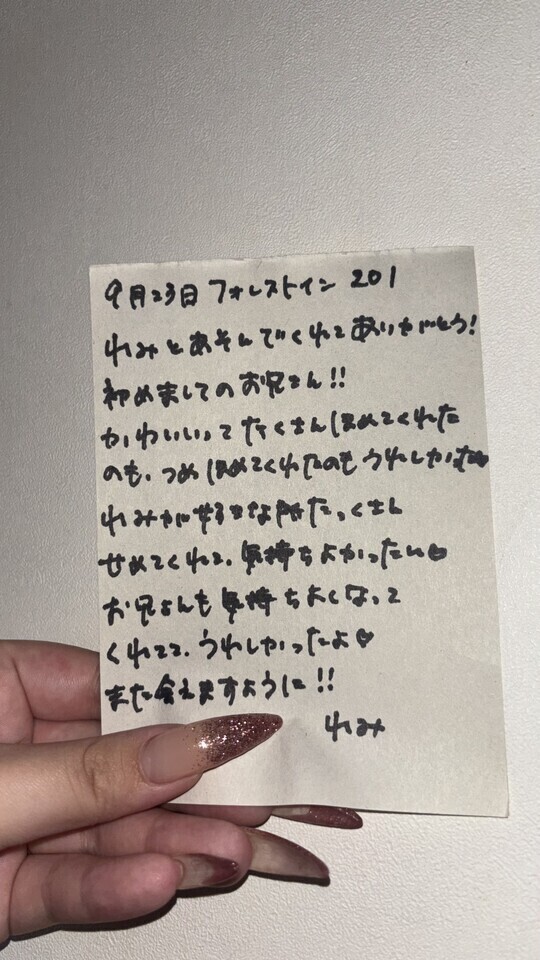 9月23日 フォレストイン 201
れみとあそんでくれてありがとう!
初めましてのお兄さん!!
かわいいってたくさんほめてくれた
のも、つめほめてくれたのもうれしかった♥
れみが好きな所たっくさん
せめてくれて、気持ちよかったよ♥
お兄さんも気持ちよくなって
くれてて、うれしかったよ♥
また会えますように!!
れみ